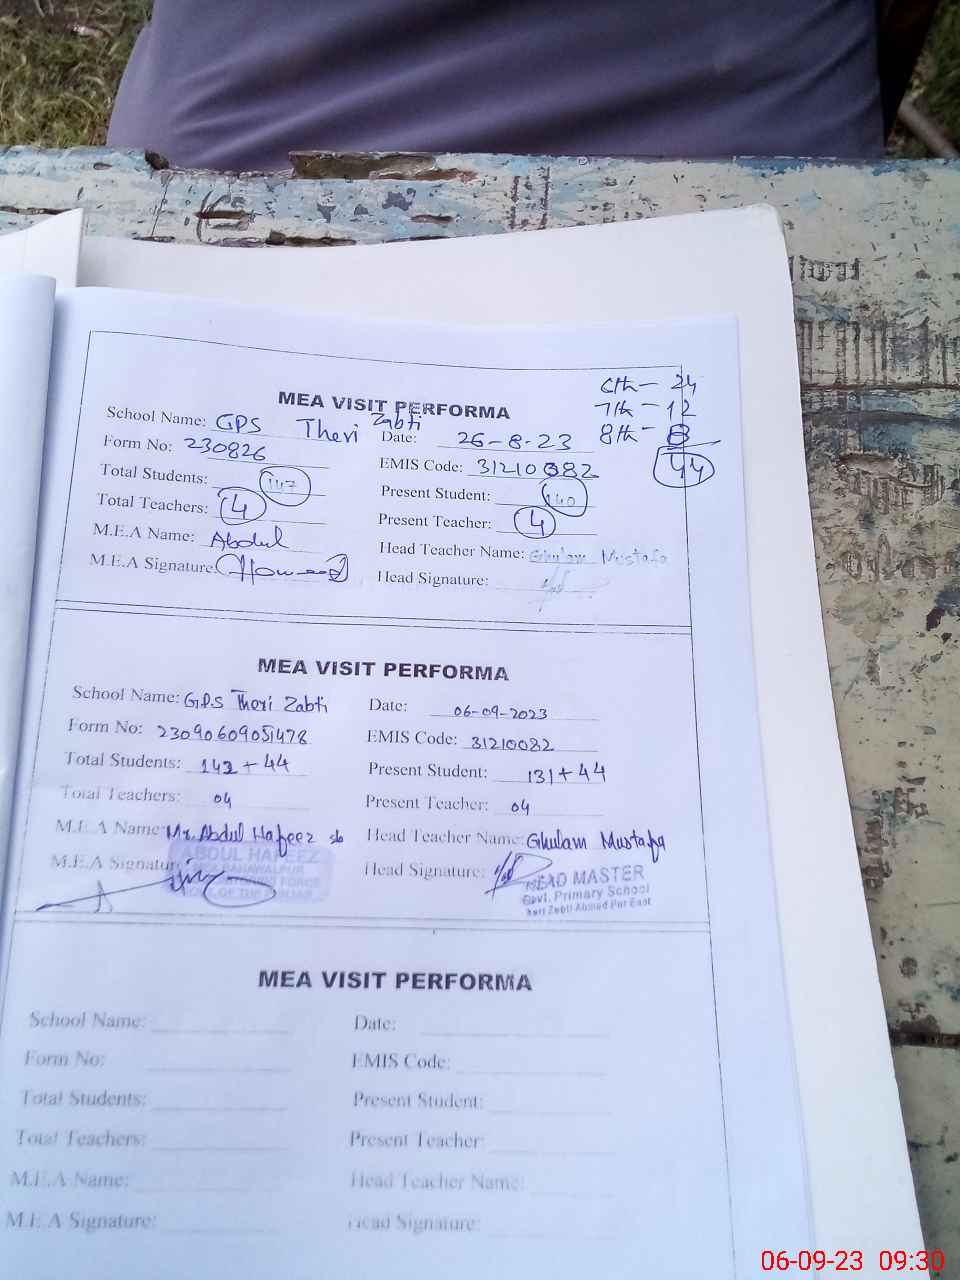 6th – 24
7th – 12
8th – 8
44
MEA VISIT PERFORMA
School Name: GPS Theri Zabti Date: 26-8-23
Form No: 230826 EMIS Code: 31210082
Total Students: 147 Present Student: 140
Total Teachers: 4 Present Teacher: 4
M.E.A Name: Abdul Head Teacher Name: Ghulam Mustafa
M.E.A Signature: Head Signature:
MEA VISIT PERFORMA
School Name: G.P.S Theri Zabti Date: 06-09-2023
Form No: 23090609051478 EMIS Code: 31210082
Total Students: 142 + 44 Present Student: 131 + 44
Total Teachers: 04 Present Teacher: 04
M.E.A Name: Mr. Abdul Hafeez sb Head Teacher Name: Ghulam Mustafa
M.E.A Signature: Head Signature:
ABDUL HAFEEZ
BAHAWALPUR
FORCE
OF THE PUNJAB
HEAD MASTER
Govt. Primary School
heri Zabti Ahmed Pur East
MEA VISIT PERFORMA
School Name: Date:
Form No: EMIS Code:
Total Students: Present Student:
Total Teachers: Present Teacher:
M.E.A Name: Head Teacher Name:
M.E.A Signature: Head Signature:
06-09-23 09:30